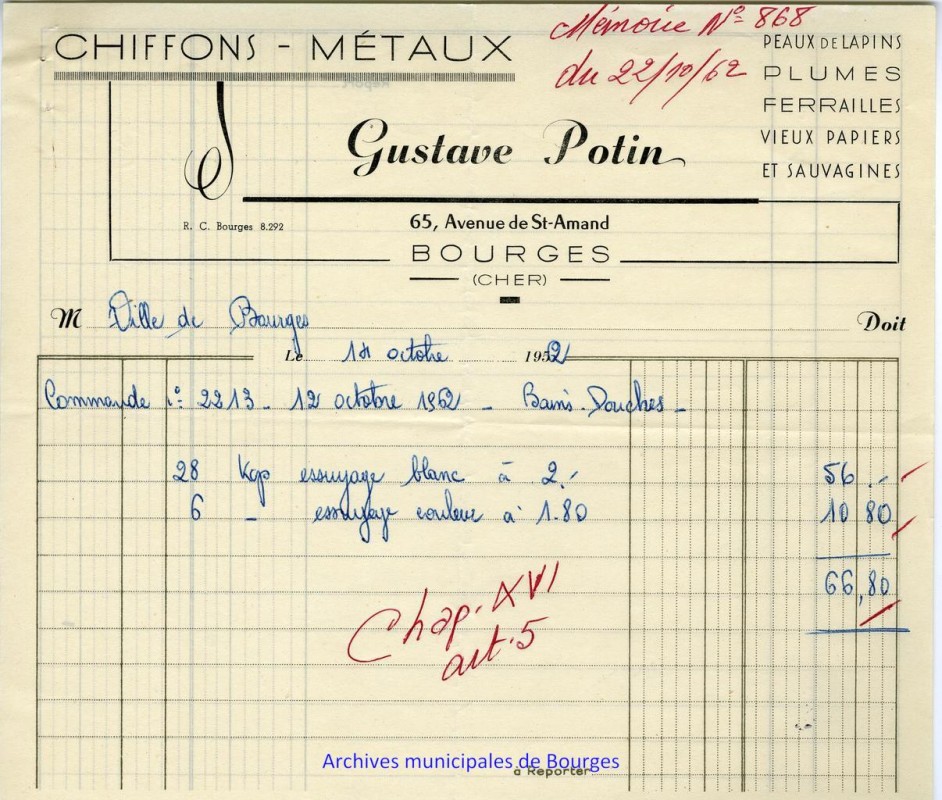 CHIFFONS - MÉTAUX
Mémoire N° 868
du 22/10/62
PEAUX DE LAPINS
PLUMES
FERRAILLES
VIEUX PAPIERS
ET SAUVAGINES
Report
Gustave Potin
R. C. Bourges 8.292
65, Avenue de St-Amand
BOURGES
(CHER)
M Ville de Bourges Doit
Le octobre 1952
Commande n° 2213 - 12 octobre 1962 - Bains-Douches -
28 Kgs essuyage blanc à 2.- 56.-
6 - essuyage couleur à 1.80 10 80
66,80
Chap. XVI
art. 5
Archives municipales de Bourges
à Reporter